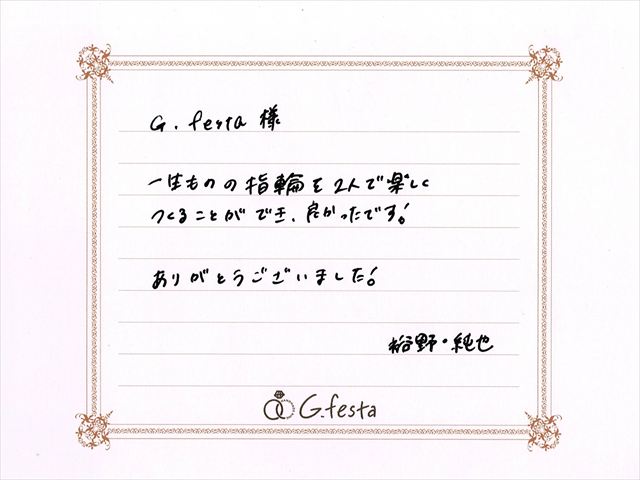 G. festa 様
一生ものの指輪を2人で楽しく
つくることができ、良かったです!
ありがとうございました!
裕野・純也
G.festa